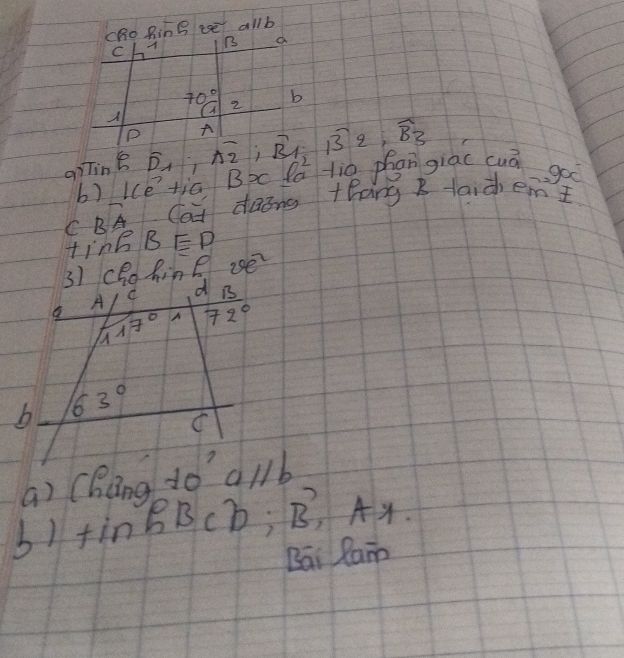 cho hình vẽ a//b
C 1 B a
70° 1 2 b
1 D A
a) Tính D1, A2, B1, B2, B3
b) Kẻ tia Bx là tia phân giác của góc
CBA Cắt đường thẳng b tại điểm E
tính BED
3) cho hình vẽ
A c d B
a 117° 1 72°
1
b 63° C
a) Chứng tỏ a//b
b) tính BCb; B, A1.
Bài làm